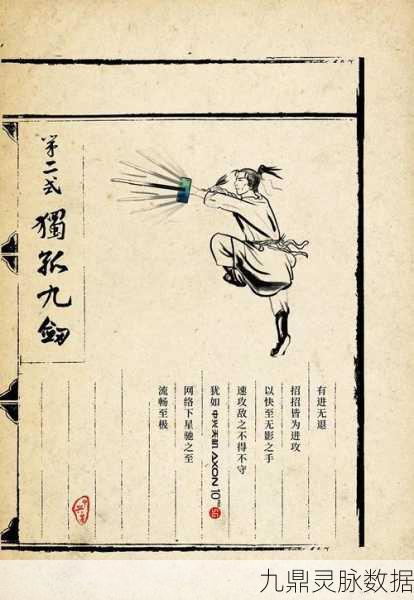 第二式
獨孤九劍
有进无退
招招皆为进攻
以快至无影之手
速攻敌之不得不守
犹如中兴天机AXON 10 Pro 5G
网络下星驰之至
流畅至极
九鼎灵脉数据